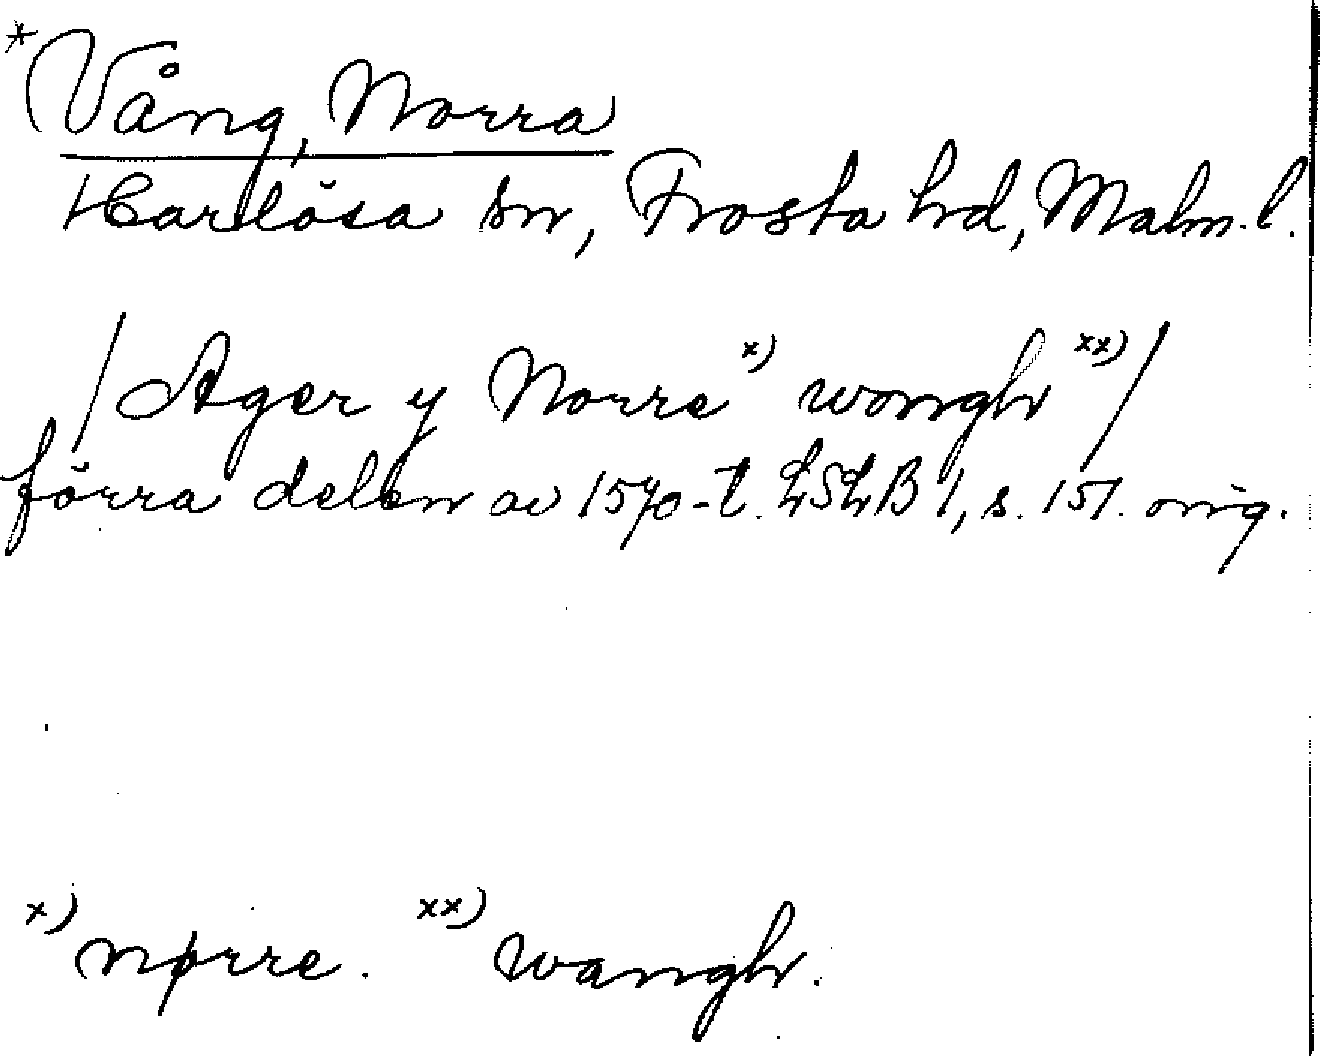 *Vång, Norra
Harlösa sn, Frosta hd, Malm. l.
/Ager y Norre x) wongh xx)/
förra delen av 1570-t. LSLB 1, s. 151. orig.
x) nørre. xx) wangh.